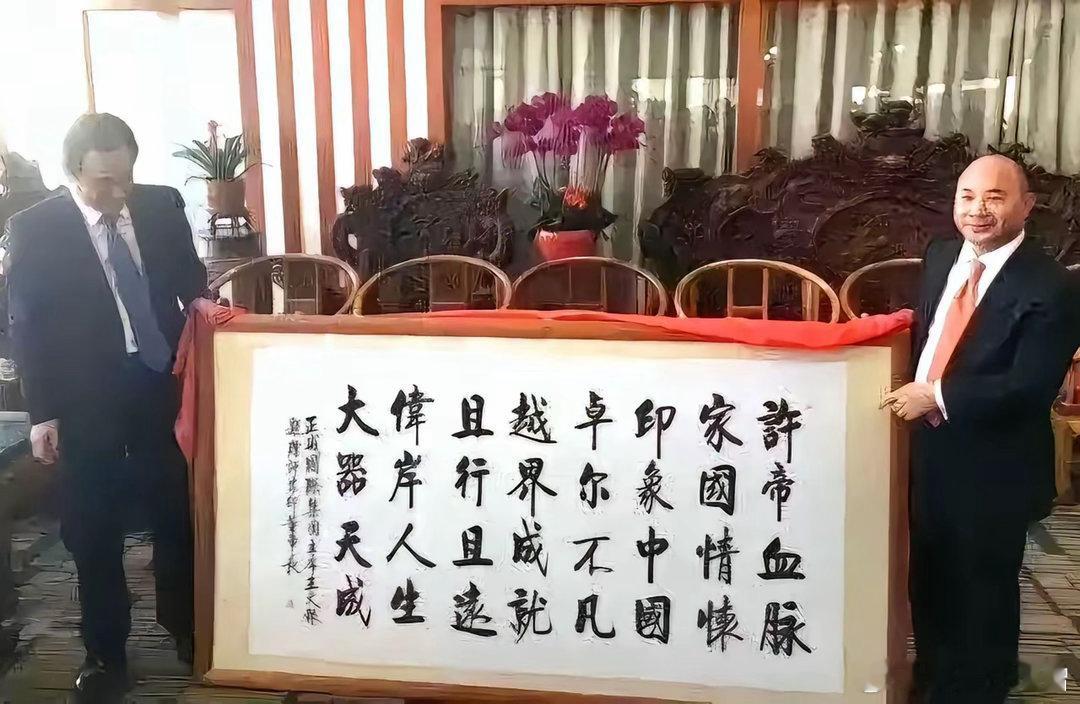 許帝血脉
家國情懷
印象中國
卓尔不凡
越界成就
且行且遠
偉岸人生
大器天成
正威國際集團主席王文銀
印董事長